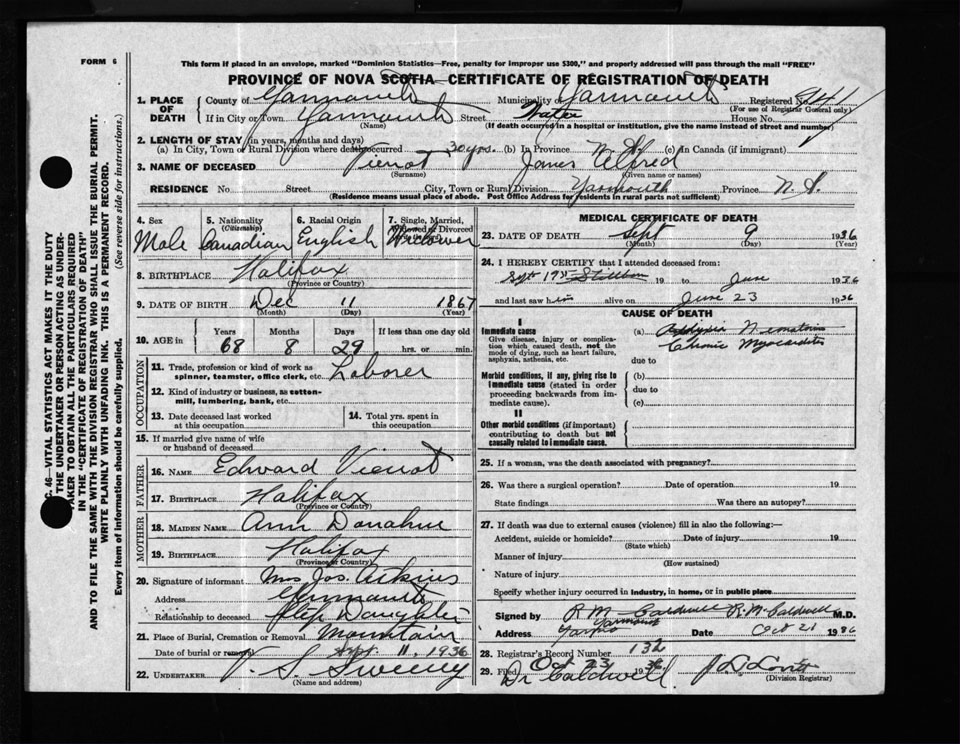 FORM 6
This form if placed in an envelope, marked "Dominion Statistics—Free, penalty for improper use $300," and properly addressed will pass through the mail "FREE"
PROVINCE OF NOVA SCOTIA—CERTIFICATE OF REGISTRATION OF DEATH
1. PLACE OF DEATH County of Yarmouth Municipality of Yarmouth Registered No.
(For use of Registrar General only)
If in City or Town Yarmouth Street Water House No.
(Name) (If death occurred in a hospital or institution, give name instead of street and number)
2. LENGTH OF STAY (in years, months and days)
(a) In City, Town or Rural Division where death occurred 30 yrs. (b) In Province (c) In Canada (if immigrant)
3. NAME OF DECEASED Vienot James Alfred
(Surname) (Given name or names)
RESIDENCE No. Street City, Town or Rural Division Yarmouth Province N. S.
(Residence means usual place of abode. Post Office Address for residents in rural parts not sufficient)
4. Sex Male
5. Nationality (Citizenship) Canadian
6. Racial Origin English
7. Single, Married, Widowed or Divorced Widower
8. BIRTHPLACE Halifax
(Province or Country)
9. DATE OF BIRTH Dec 11 1867
(Month) (Day) (Year)
10. AGE in Years Months Days If less than one day old
68 8 29 hrs. or min.
OCCUPATION
11. Trade, profession or kind of work as spinner, teamster, office clerk, etc. Laborer
12. Kind of industry or business, as cotton-mill, lumbering, bank, etc.
13. Date deceased last worked at this occupation
14. Total yrs. spent in this occupation
15. If married give name of wife or husband of deceased
FATHER
16. NAME Edward Vienot
17. BIRTHPLACE Halifax
(Province or Country)
MOTHER
18. MAIDEN NAME Ann Donahue
19. BIRTHPLACE Halifax
(Province or Country)
20. Signature of informant Mrs Jos. Atkins
Address Yarmouth
Relationship to deceased Step Daughter
21. Place of Burial, Cremation or Removal Mountain
Date of burial or removal Sept. 11, 1936
22. UNDERTAKER V. S. Sweeny
(Name and address)
MEDICAL CERTIFICATE OF DEATH
23. DATE OF DEATH Sept 9 1936
(Month) (Day) (Year)
24. I HEREBY CERTIFY that I attended deceased from:
Sept 19 to June 1936
and last saw him alive on June 23 1936
CAUSE OF DEATH
I
Immediate cause
Give disease, injury or complication which caused death, not the mode of dying, such as heart failure, asphyxia, asthenia, etc.
(a)
Chronic Myocarditis
due to
Morbid conditions, if any, giving rise to immediate cause (stated in order proceeding backwards from immediate cause).
(b)
due to
(c)
II
Other morbid conditions (if important) contributing to death but not causally related to immediate cause.
25. If a woman, was the death associated with pregnancy?
26. Was there a surgical operation? Date of operation 19
State findings Was there an autopsy?
27. If death was due to external causes (violence) fill in also the following:—
Accident, suicide or homicide? Date of injury 19
(State which)
Manner of injury
(How sustained)
Nature of injury
Specify whether injury occurred in industry, in home, or in public place
Signed by R M Caldwell R. M. Caldwell M.D.
Yarmouth
Address Date Oct 21 1936
28. Registrar's Record Number 132
29. Filed Oct 23 1936
Dr Caldwell
(Division Registrar)
C. 46—VITAL STATISTICS ACT MAKES IT THE DUTY
OF THE UNDERTAKER OR PERSON ACTING AS UNDER-
TAKER TO OBTAIN ALL THE PARTICULARS REQUIRED
IN THE "CERTIFICATE OF REGISTRATION OF DEATH"
AND TO FILE THE SAME WITH THE DIVISION REGISTRAR WHO SHALL ISSUE THE BURIAL PERMIT.
WRITE PLAINLY WITH UNFADING INK. THIS IS A PERMANENT RECORD.
Every item of information should be carefully supplied. (See reverse side for instructions.)